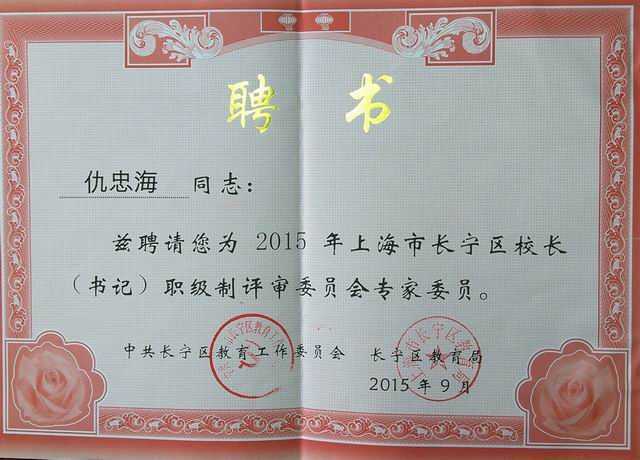 聘书
仇忠海 同志：
兹聘请您为 2015 年上海市长宁区校长
（书记）职级制评审委员会专家委员。
中共长宁区教育工作委员会 长宁区教育局
2015 年 9 月